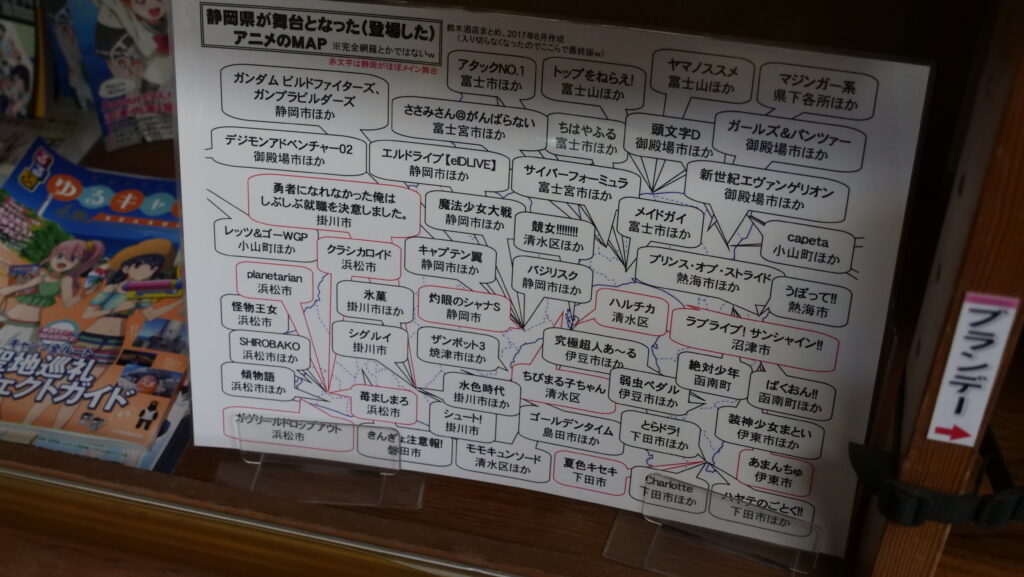 静岡県が舞台となった(登場した)
アニメのMAP ※完全網羅とかではないw
鈴木酒店まとめ、2017年6月作成
(入り切らなくなったのでここらで最終版w)
赤文字は静岡がほぼメイン舞台
アタックNO.1
富士市ほか
トップをねらえ!
富士山ほか
ヤマノススメ
富士山ほか
マジンガー系
県下各所ほか
ガンダム ビルドファイターズ、
ガンプラビルダーズ
静岡市ほか
ささみさん@がんばらない
富士宮市ほか
ちはやふる
富士市ほか
頭文字D
御殿場市ほか
ガールズ&パンツァー
御殿場市ほか
デジモンアドベンチャー02
御殿場市ほか
エルドライブ【elDLIVE】
静岡市ほか
サイバーフォーミュラ
富士宮市ほか
新世紀エヴァンゲリオン
御殿場市ほか
勇者になれなかった俺は
しぶしぶ就職を決意しました。
掛川市
魔法少女大戦
静岡市ほか
競女!!!!!!!!
清水区ほか
メイドガイ
富士市ほか
capeta
小山町ほか
レッツ&ゴーWGP
小山町ほか
クラシカロイド
浜松市
キャプテン翼
静岡市ほか
バジリスク
静岡市ほか
プリンス・オブ・ストライド
熱海市ほか
うぽって!!
熱海市
planetarian
浜松市
氷菓
掛川市ほか
灼眼のシャナS
静岡市
ハルチカ
清水区
ラブライブ!サンシャイン!!
沼津市
怪物王女
浜松市
シグルイ
掛川市
ザンボット3
焼津市ほか
究極超人あ~る
伊豆市ほか
絶対少年
函南町
ばくおん!!
函南町ほか
SHIROBAKO
浜松市ほか
傾物語
浜松市ほか
苺ましまろ
浜松市
水色時代
掛川市ほか
ちびまる子ちゃん
清水区
弱虫ペダル
伊豆市ほか
装神少女まとい
伊東市ほか
ガヴリールドロップアウト
浜松市
きんぎょ注意報!
磐田市
シュート!
掛川市
ゴールデンタイム
島田市ほか
とらドラ!
下田市ほか
あまんちゅ
伊東市
モモキュンソード
清水区ほか
夏色キセキ
下田市
Charlotte
下田市ほか
ハヤテのごとく!!
下田市ほか
ブランデー
るるぶ
ゆるキャ
聖地巡礼
ェクトガイド